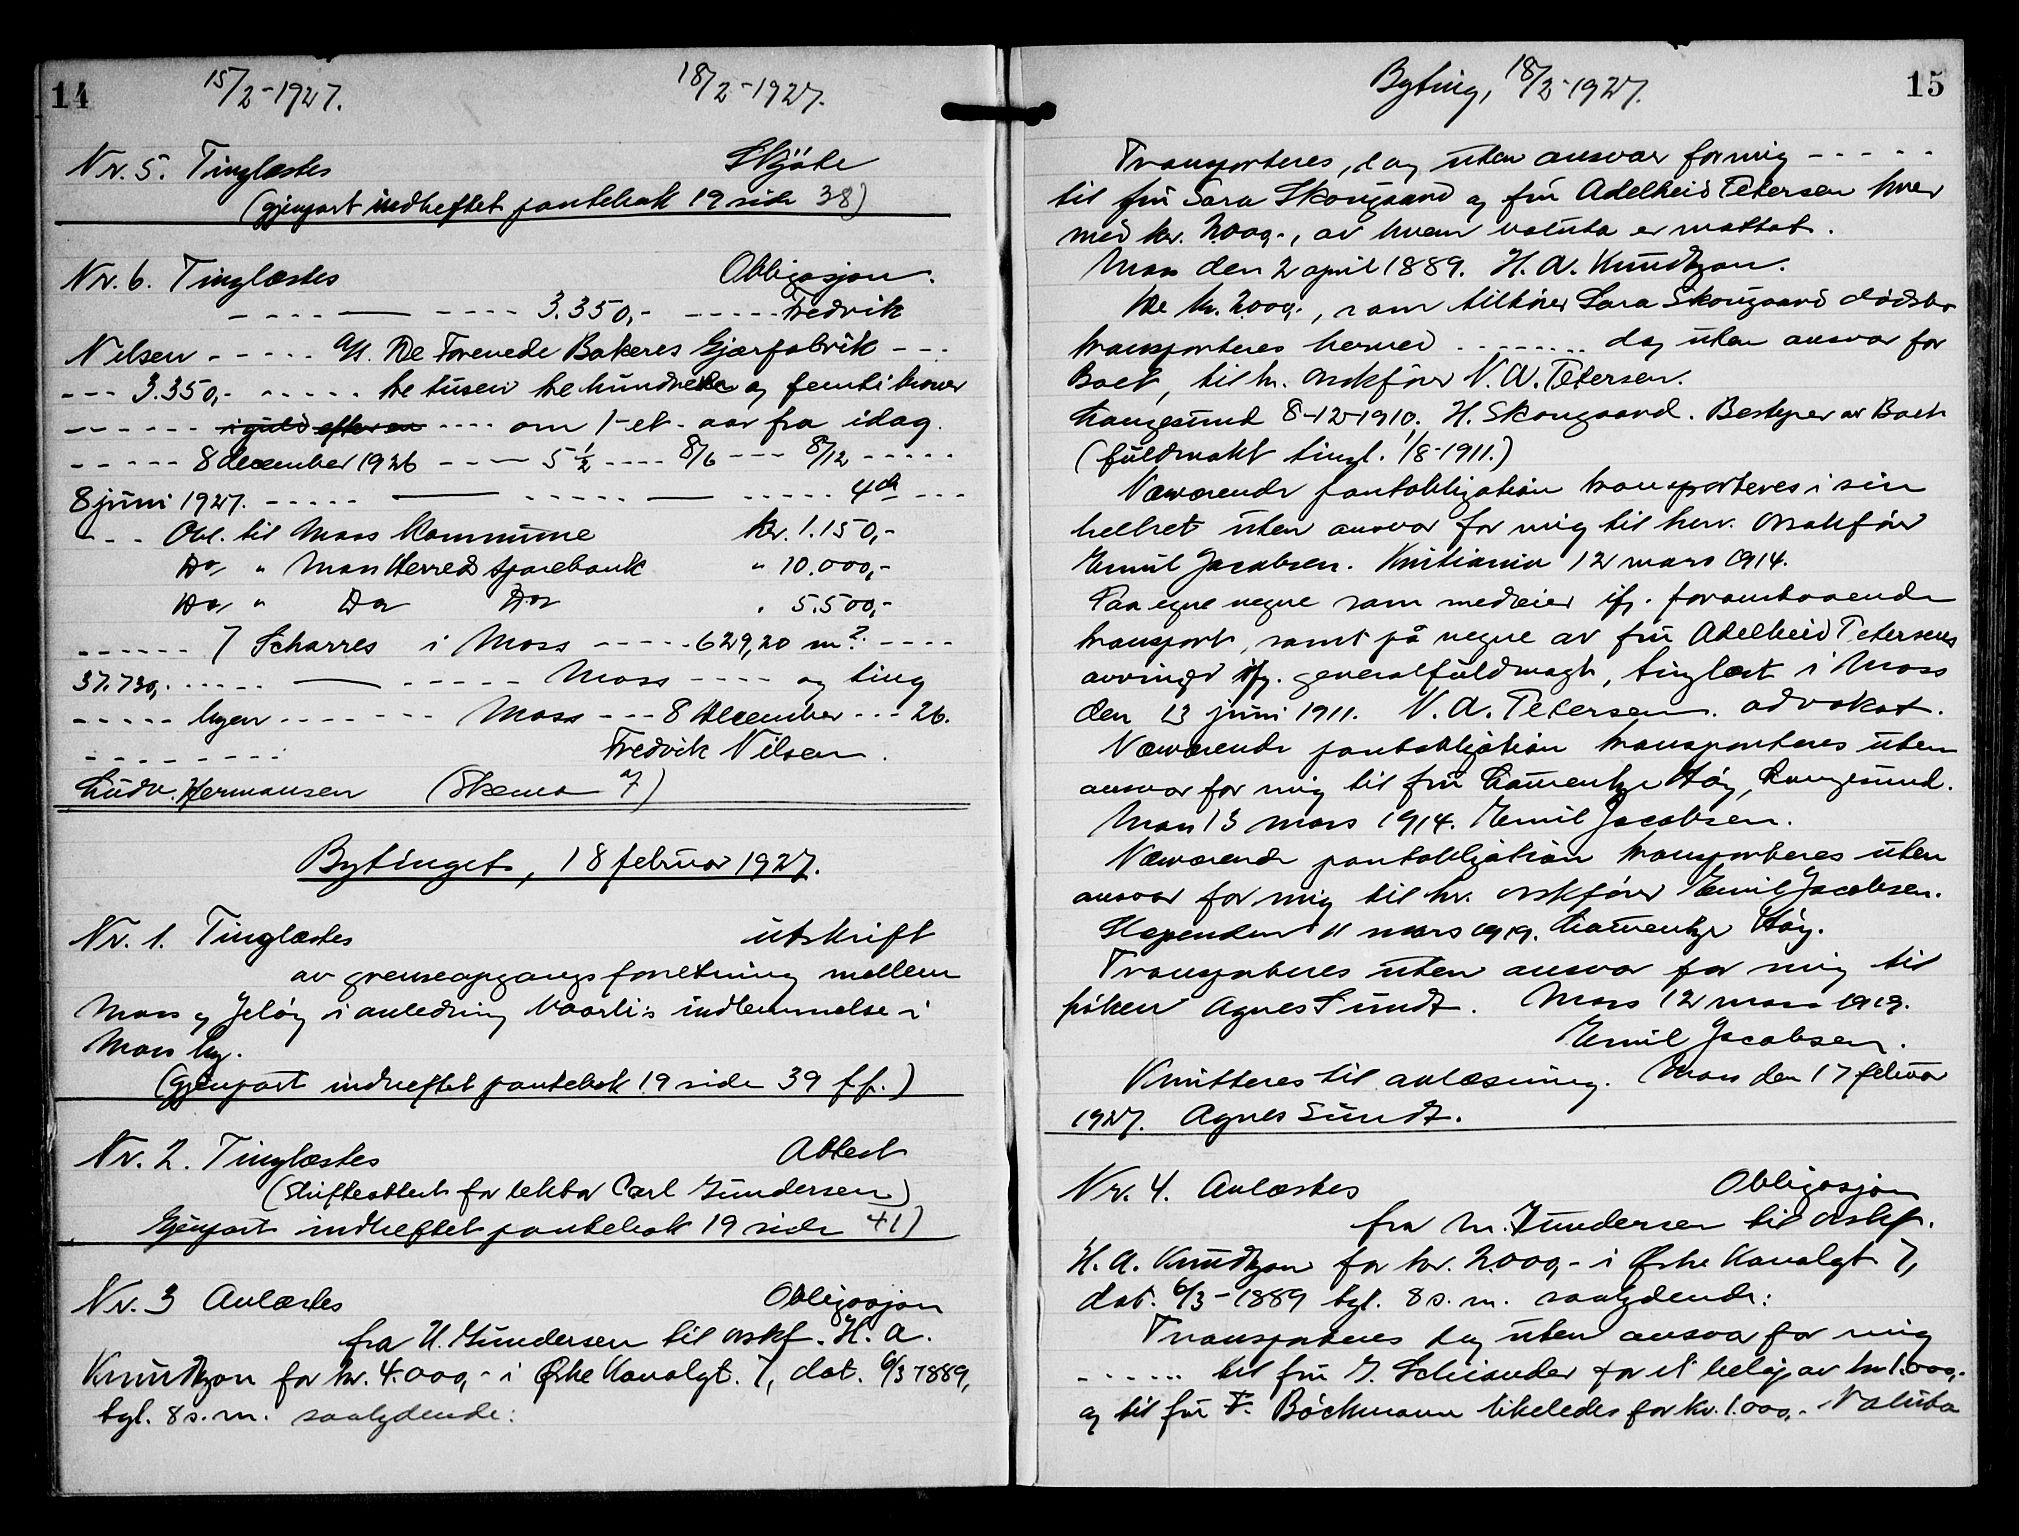 14
15/2-1927.
18/2-1927.
Nr. 5. Tinglæstes Skjøte
(gjenpart indheftet pantebok 19 side 38)
Nr. 6. Tinglæstes Obligasjon.
- - - - — - - - - 3.350,- - - - - - Fredrik
Nilsen - - - - - A/S. De Forenede Bakeres Gjærfabrik - - -
- - - 3.350,- - - - - - tre tusen tre hundrede og femti kroner
- - - - - - i guld efter en - - - - om 1-et- aar fra idag.
- - - - - 8 december 1926 - - - - 5 1/2 - - - - 8/6 - - - 8/12 - - - - -
8 juni 1927. - - - - - — - - - - - — - - - - - 4de - - -
- - - Obl. til Moss Kommune kr. 1.150,-
Do, " Moss Herred Sparebank " 10.000,-
Do, " Do Do " 5.500,-
- - - - - - 7 Scharres i Moss - - - - - 629,20 m². - - - -
37.730,. - - - - - — - - - - - Moss - - - - og ting
- - - - - byen - - - - - - - Moss - - - 8 December - - - 26.
- - - - - - - - Fredrik Nilsen.
Ludv. Hermansen (Skema 7)
Bytinget, 18 februar 1927.
Nr. 1. Tinglæstes utskrift
av grenseopgangsforretning mellem
Moss og Jeløy i anledning Vaarlis indlemmelse i
Moss by.
(Gjenpart indheftet pantebok 19 side 39 ff.)
Nr. 2. Tinglæstes Attest
(Skifteattest for lektor Carl Gundersen)
Gjenpart indheftet pantebok 19 side 41)
Nr. 3 Avlæstes Obligasjon
fra H. Gundersen til orskf. H. A.
Knudtzon for kr. 4.000,- i Østre Kanalgt. 7, dat. 6/3 1889,
tgl. 8 s. m. saalydende:
Byting, 18/2-1927.
15
Transporteres, dog uten ansvar for mig - - - - -
til fru Sara Skougaard og fru Adelheid Petersen hver
med kr. 2.000,-, av hvem valuta er mottat.
Moss den 2 april 1889. H. A. Knudtzon.
De kr. 2.000,-, som tilhører Sara Skougaard dødsbo
transporteres herved - - - - - - - - dog uten ansvar for
Boet, til hr. orskfører N. A. Petersen.
Langesund 8-12-1910. H. Skougaard. Bestyrer av Boet
(fuldmakt tingl. 1/8-1911.)
Nærværende pantobligation transporteres i sin
helhet uten ansvar for mig til herr. orskfører
Emil Jacobsen. Kristiania 12 mars 1914.
Paa egne vegne som medeier ifg. foranstaaende
transport, samt på vegne av fru Adelheid Petersens
arvinger ifg. generalfuldmagt, tinglæst i Moss
den 13 juni 1911. N. A. Petersen. advokat.
Nærværende pantobligation transporteres uten
ansvar for mig til fru Laurentze Høy, Langesund.
Moss 13 mars 1914. Emil Jacobsen.
Nærværende pantobligation transporteres uten
ansvar for mig til hr. orskfører Emil Jacobsen.
11 mars 1919. Laurentze Høy.
Transporteres uten ansvar for mig til
frøken Agnes Sundt. Moss 12 mars 1919.
Emil Jacobsen.
Kvitteres til avlæsning. Moss den 17 februar
1927. Agnes Sundt.
Nr. 4. Avlæstes Obligasjon
fra M. Gundersen til orskf.
H. A. Knudtzon for kr. 2.000,- i Østre Kanalgt 7,
dat. 6/3-1889 tgl. 8 s. m. saalydende:
Transporteres dog uten ansvar for mig
- - - - - - til fru J. for et beløp av kr 1.000,-
og til fru F. Böckmann likeledes for kr. 1.000,-. Valuta